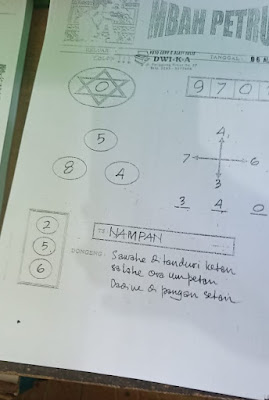 MBAH PETRU
DWI-K-A
TANGGAL :
0
9 7 0
5
8 4
4
7 6
3
3 4 0
2
5
6
NAMPAN
DONGENG : Sawahe di tanduri ketan
salahe ora umpetan
Dadine di pangan setan